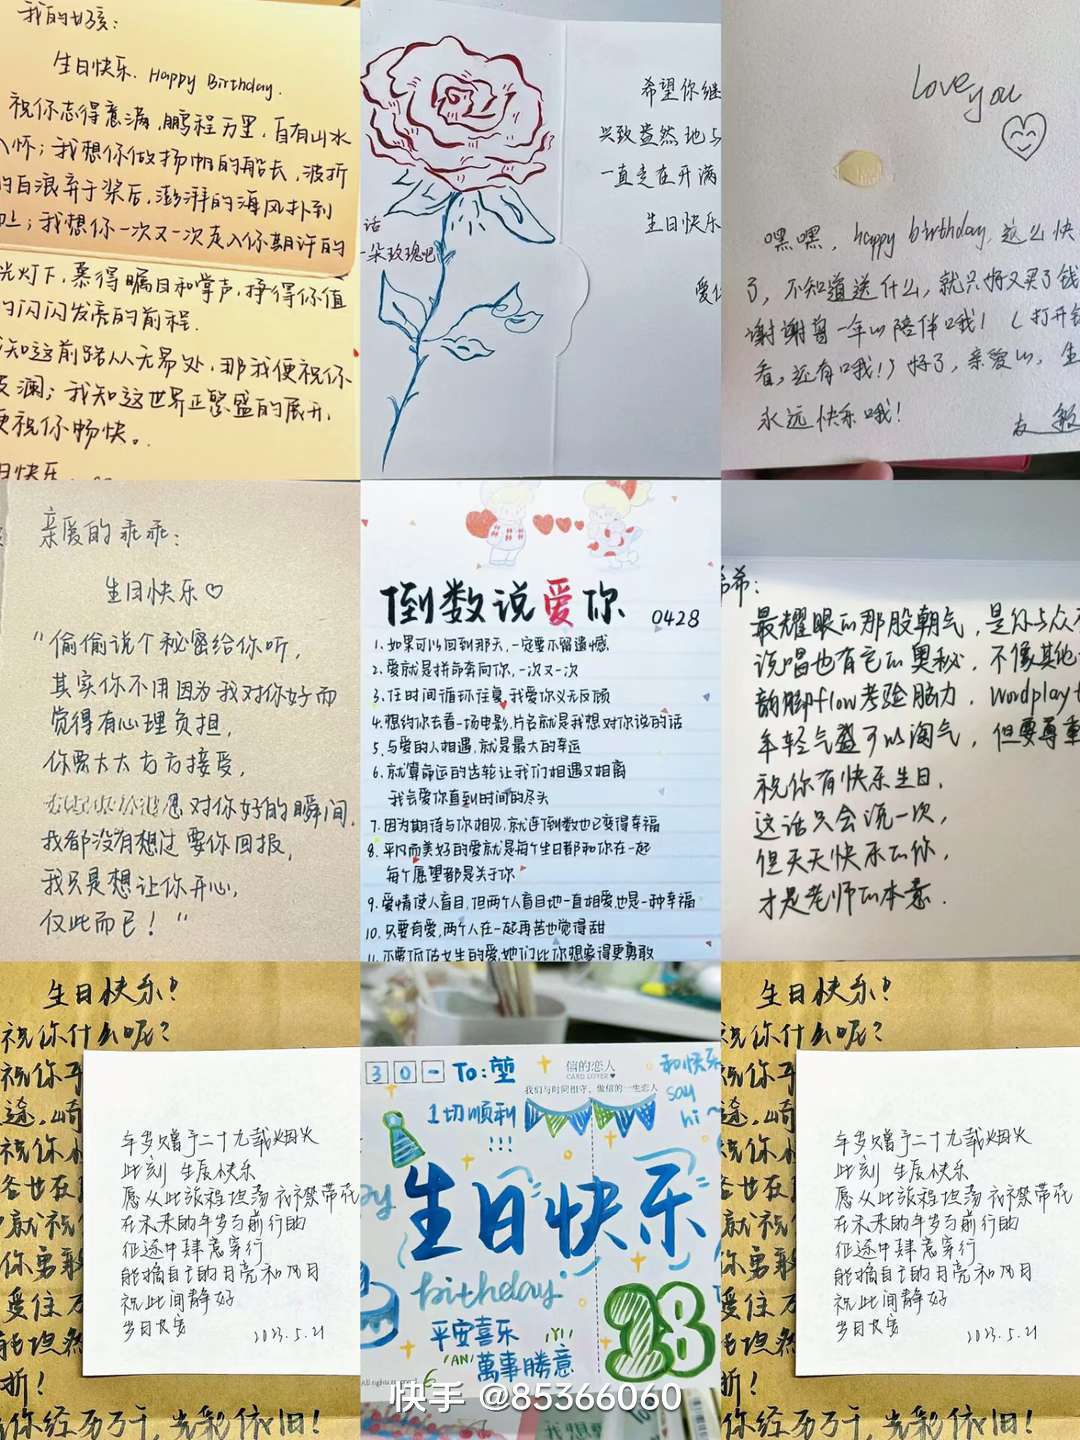 我的女孩：
生日快乐. Happy Birthday.
祝你志得意满，鹏程万里，自有山水
入怀；我想你做扬帆的船长，波折
的白浪弃于桨后，澎湃的海风扑到
上；我想你一次又一次走入你期许的
光灯下，暴得瞩目和掌声，挣得你值
的闪闪发亮的前程.
知这前路从无易处，那我便祝你
波澜；我知这世界正繁盛的展开，
便祝你畅快。
日快乐.
话
一朵玫瑰吧
希望你继
兴致盎然地与
一直走在开满
生日快乐
爱你
love you
嘿嘿，happy birthday，这么快
了，不知道送什么，就只好又买了钱
谢谢着一年的陪伴哦！（打开钱
看，还有哦！）好了，亲爱的，生
永远快乐哦！
友
亲爱的乖乖：
生日快乐♡
“偷偷说个秘密给你听，
其实你不用因为我对你好而
觉得有心理负担，
你要大大方方接受，
对你好的瞬间，
我都没有想过要你回报，
我只是想让你开心，
仅此而已！”
倒数说爱你 0428
1. 如果可以回到那天，一定要不留遗憾.
2. 爱就是拼命奔向你，一次又一次
3. 任时间循环往复，我爱你义无反顾
4. 想约你去看一场电影，片名就是我想对你说的话
5. 与爱的人相遇，就是最大的幸运
6. 就算命运的齿轮让我们相遇又相离
我会爱你直到时间的尽头
7. 因为期待与你相见，就连倒数也已变得幸福
8. 平凡而美好的爱就是每个生日都和你在一起
每个愿望都是关于你
9. 爱情使人盲目，但两个人盲目地一直相爱也是一种幸福
10. 只要有爱，两个人在一起再苦也觉得甜
11. 不要低估女生的爱，她们比你想象得更勇敢
希：
最耀眼的那股朝气，是你与众不
说唱也有它的奥秘，不像其他
韵脚flow考验脑力，Wordplay
年轻气盛可以淘气，但要尊重
祝你有快乐生日.
这话只会说一次，
但天天快乐的你，
才是老师的本意.
生日快乐！
祝你什么呢？
祝你平
途，崎
祝你
爱住万
折！
你经历万千，光彩依旧！
年岁赠予二十九载烟火
此刻 生辰快乐
愿从此旅程坦荡 衣襟带花
在未来的年岁与前行的
征途中肆意穿行
能摘自己的月亮和六月
祝此间静好
岁日长安
2023.5.21
30-To:堃
信的恋人
CARD LOVER
我们与时间相守，做信的一生恋人
和快乐
say
hi~
1切顺利
!!!
生日快乐
birthday!
平安喜乐
萬事勝意
18
All rights reserved
快手 @85366060
生日快乐！
祝你什么呢？
祝你平
途，崎
祝你
爱住万
折！
你经历万千，光彩依旧！
年岁赠予二十九载烟火
此刻 生辰快乐
愿从此旅程坦荡 衣襟带花
在未来的年岁与前行的
征途中肆意穿行
能摘自己的月亮和六月
祝此间静好
岁日长安
2023.5.21